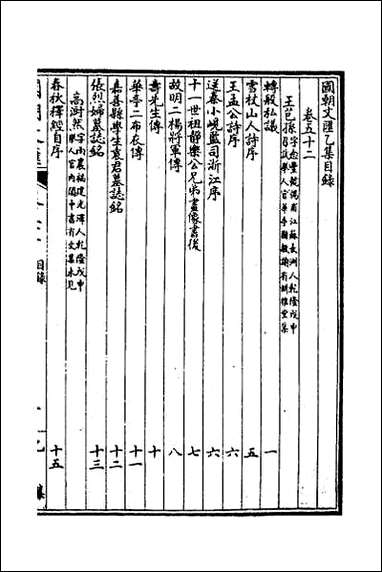 國朝文匯乙集目錄
卷五十二
王芑孫 字念豐號惕甫江蘇長洲人乾隆戊申召試舉人官華亭縣教諭有淵雅堂集
轉般私議 一
雪杖山人詩序 五
王孟公詩序 六
送秦小峴監司浙江序 六
十一世祖靜樂公兄弟畫像書後 七
故明二楊將軍傳 八
壽先生傳 十
華亭二布衣傳 十一
嘉善縣學生袁君墓誌銘 十二
張烈婦墓誌銘 十三
高澍然 字雨農福建光澤人乾隆戊申舉人官內閣中書有文集未見
春秋釋經自序 十五
目錄
乙集